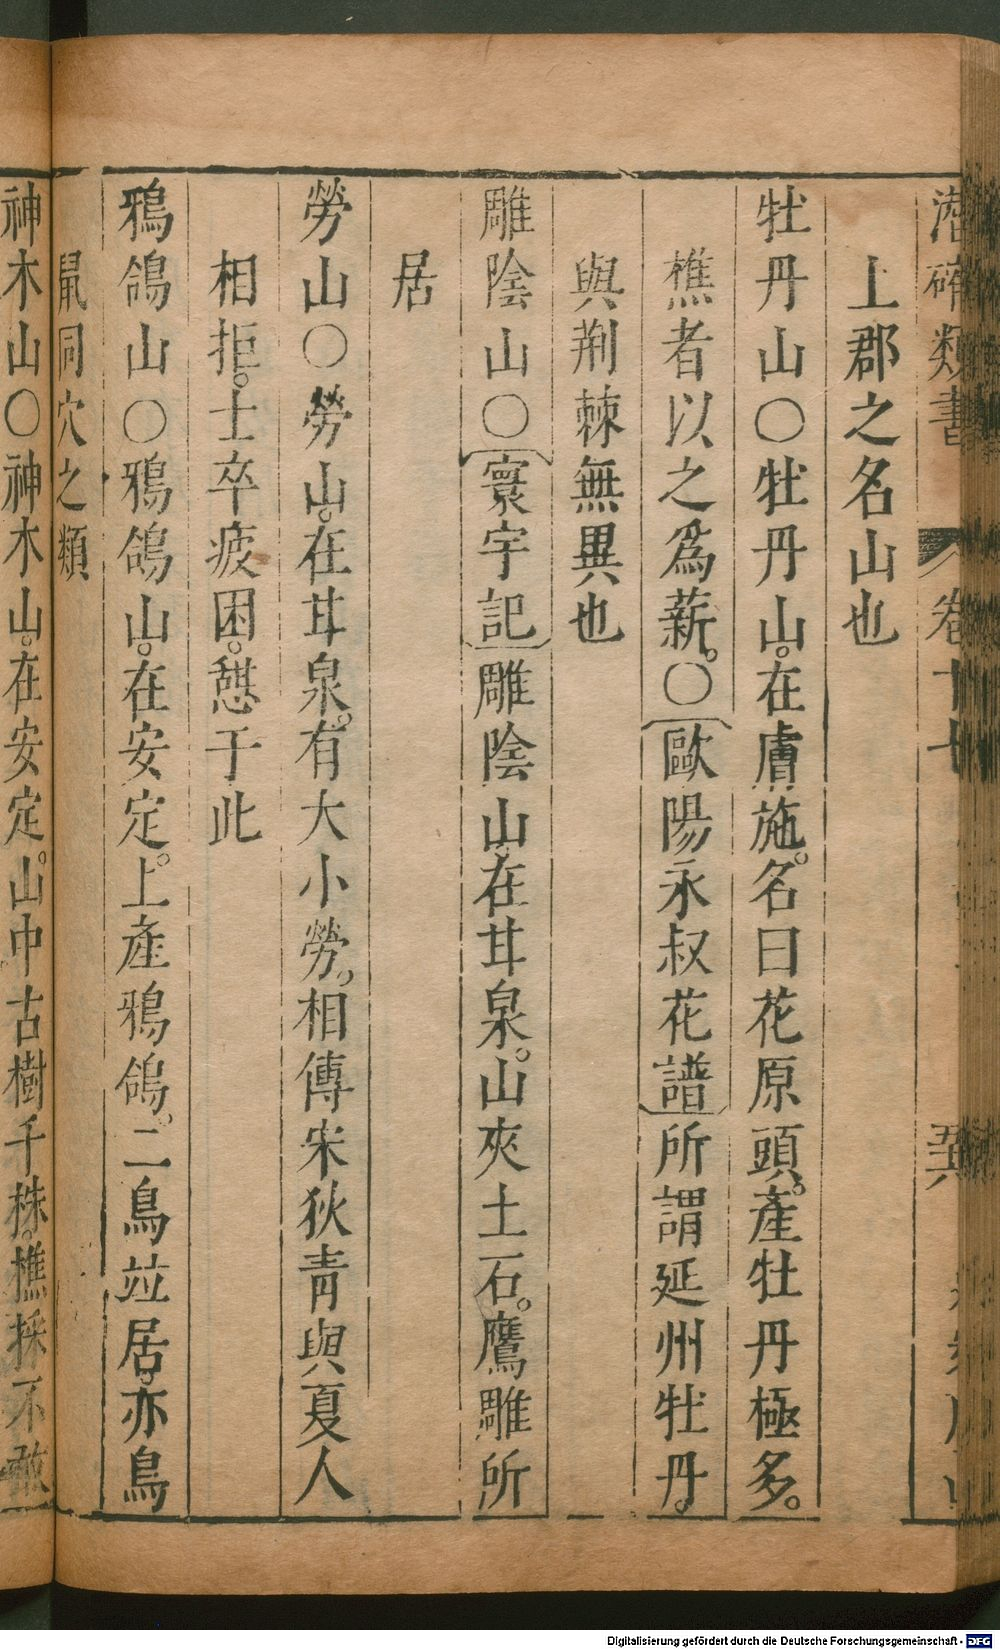 潛確類書 卷十七
上郡之名山也
牡丹山○牡丹山。在膚施。名曰花原頭。產牡丹極多。
樵者以之爲薪。○〔歐陽永叔花譜〕所謂延州牡丹。
與荆棘無異也
雕陰山○〔寰宇記〕雕陰山。在甘泉。山夾土石。鷹雕所
居
勞山○勞山。在甘泉。有大小勞。相傳宋狄青與夏人
相拒。士卒疲困。憇于此
鴉鴿山○鴉鴿山。在安定。上產鴉鴿。二鳥竝居。亦鳥
鼠同穴之類
神木山○神木山。在安定。山中古樹千株。樵採不敢
Digitalisierung gefördert durch die Deutsche Forschungsgemeinschaft - DFG